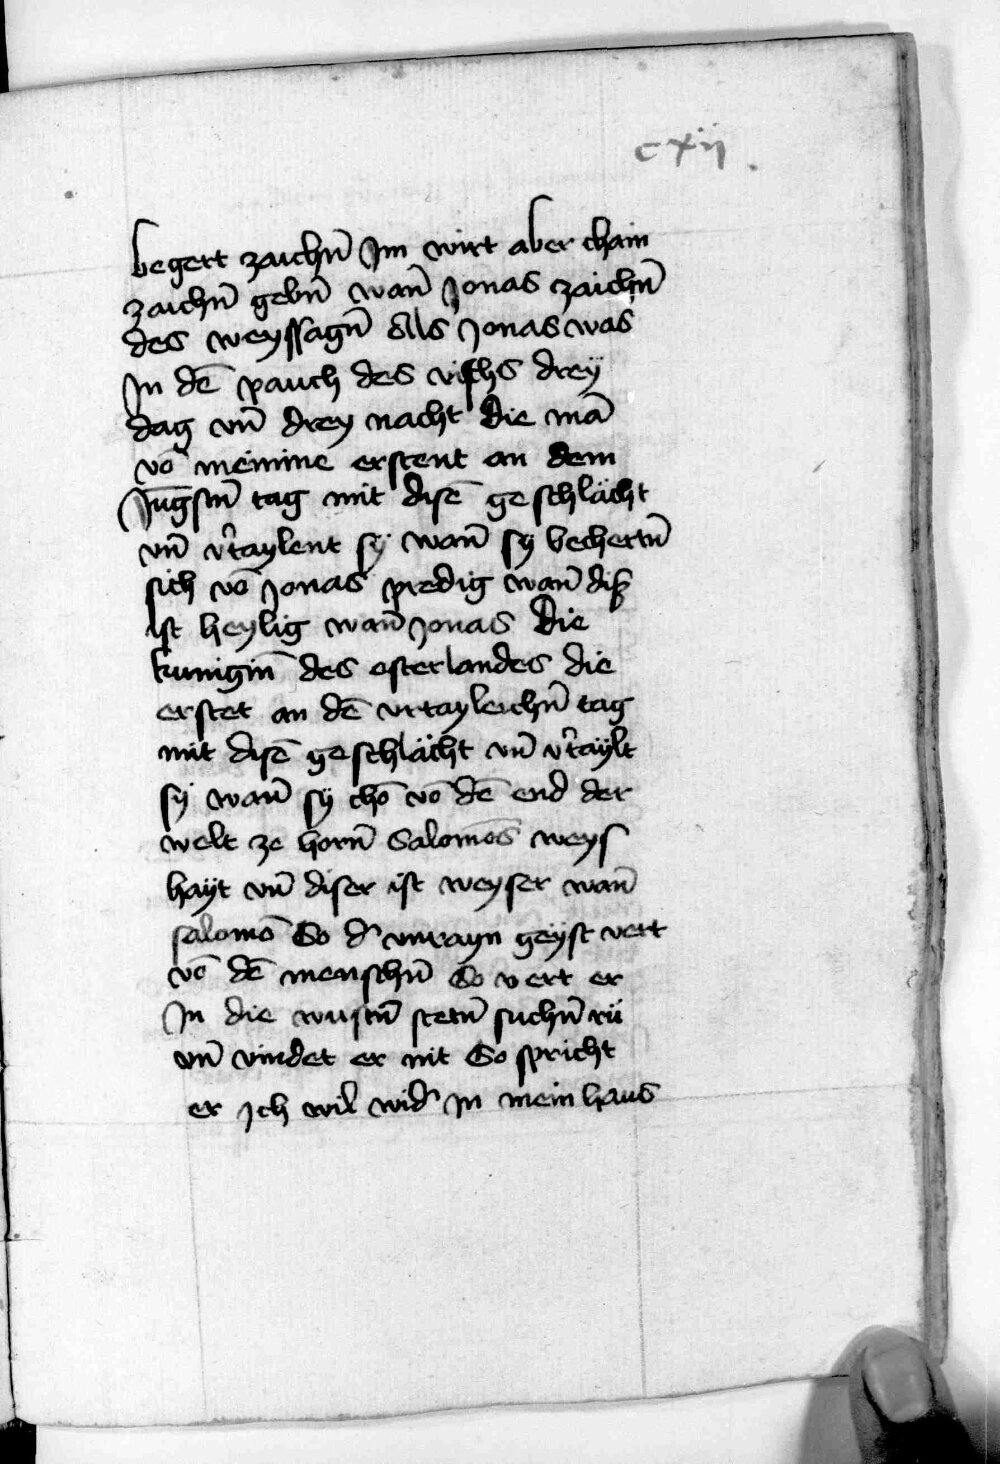 cxij
begert zaichn̄ Jm wirt aber chain
zaichn̄ gebn̄ wan̄ Jonas zaichn̄
des weyssagn̄ Als Jonas was
Jn dē pauch des vischs dreÿ
dag vn̄ drey nacht Die mā
vō meinine erstent an dem
Jūgstn̄ tag mit disē geschlächt
vn̄ v̾taylent sÿ wan̄ sÿ bechertn̄
sich vō Jonas predig wan̄ diß
ist heylig wan̄ Jonas Die
kunigin̄ des osterlandes die
erstet an dē vrtayleichn̄ tag
mit disē geschlächt vn̄ v̾taÿlt
sÿ wan̄ sÿ chō vō dē end der
welt ze horn̄ Salomōs weys
haÿt vn̄ diser ist weyser wan̄
salomō So d̾ vnrayn geÿst vert
vō dē menschn̄ So vert er
Jn die wustn̄ stetn̄ suchn̄ rü
vn̄ vindet er nit So spricht
er Jch wil wid̾ Jn mein haus